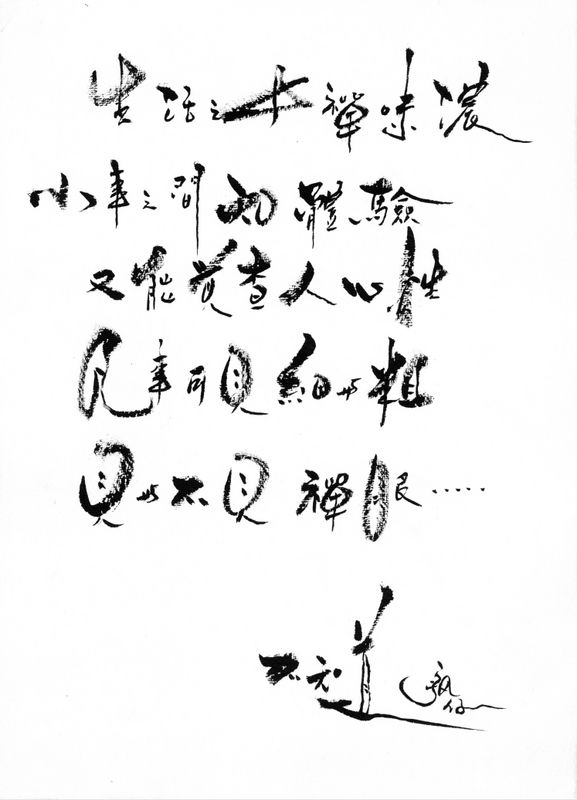 生活之中禪味濃
小事之間如體驗
又能覓查人心性
凡事可見細與粗
見與不見禪眼.....
不知道